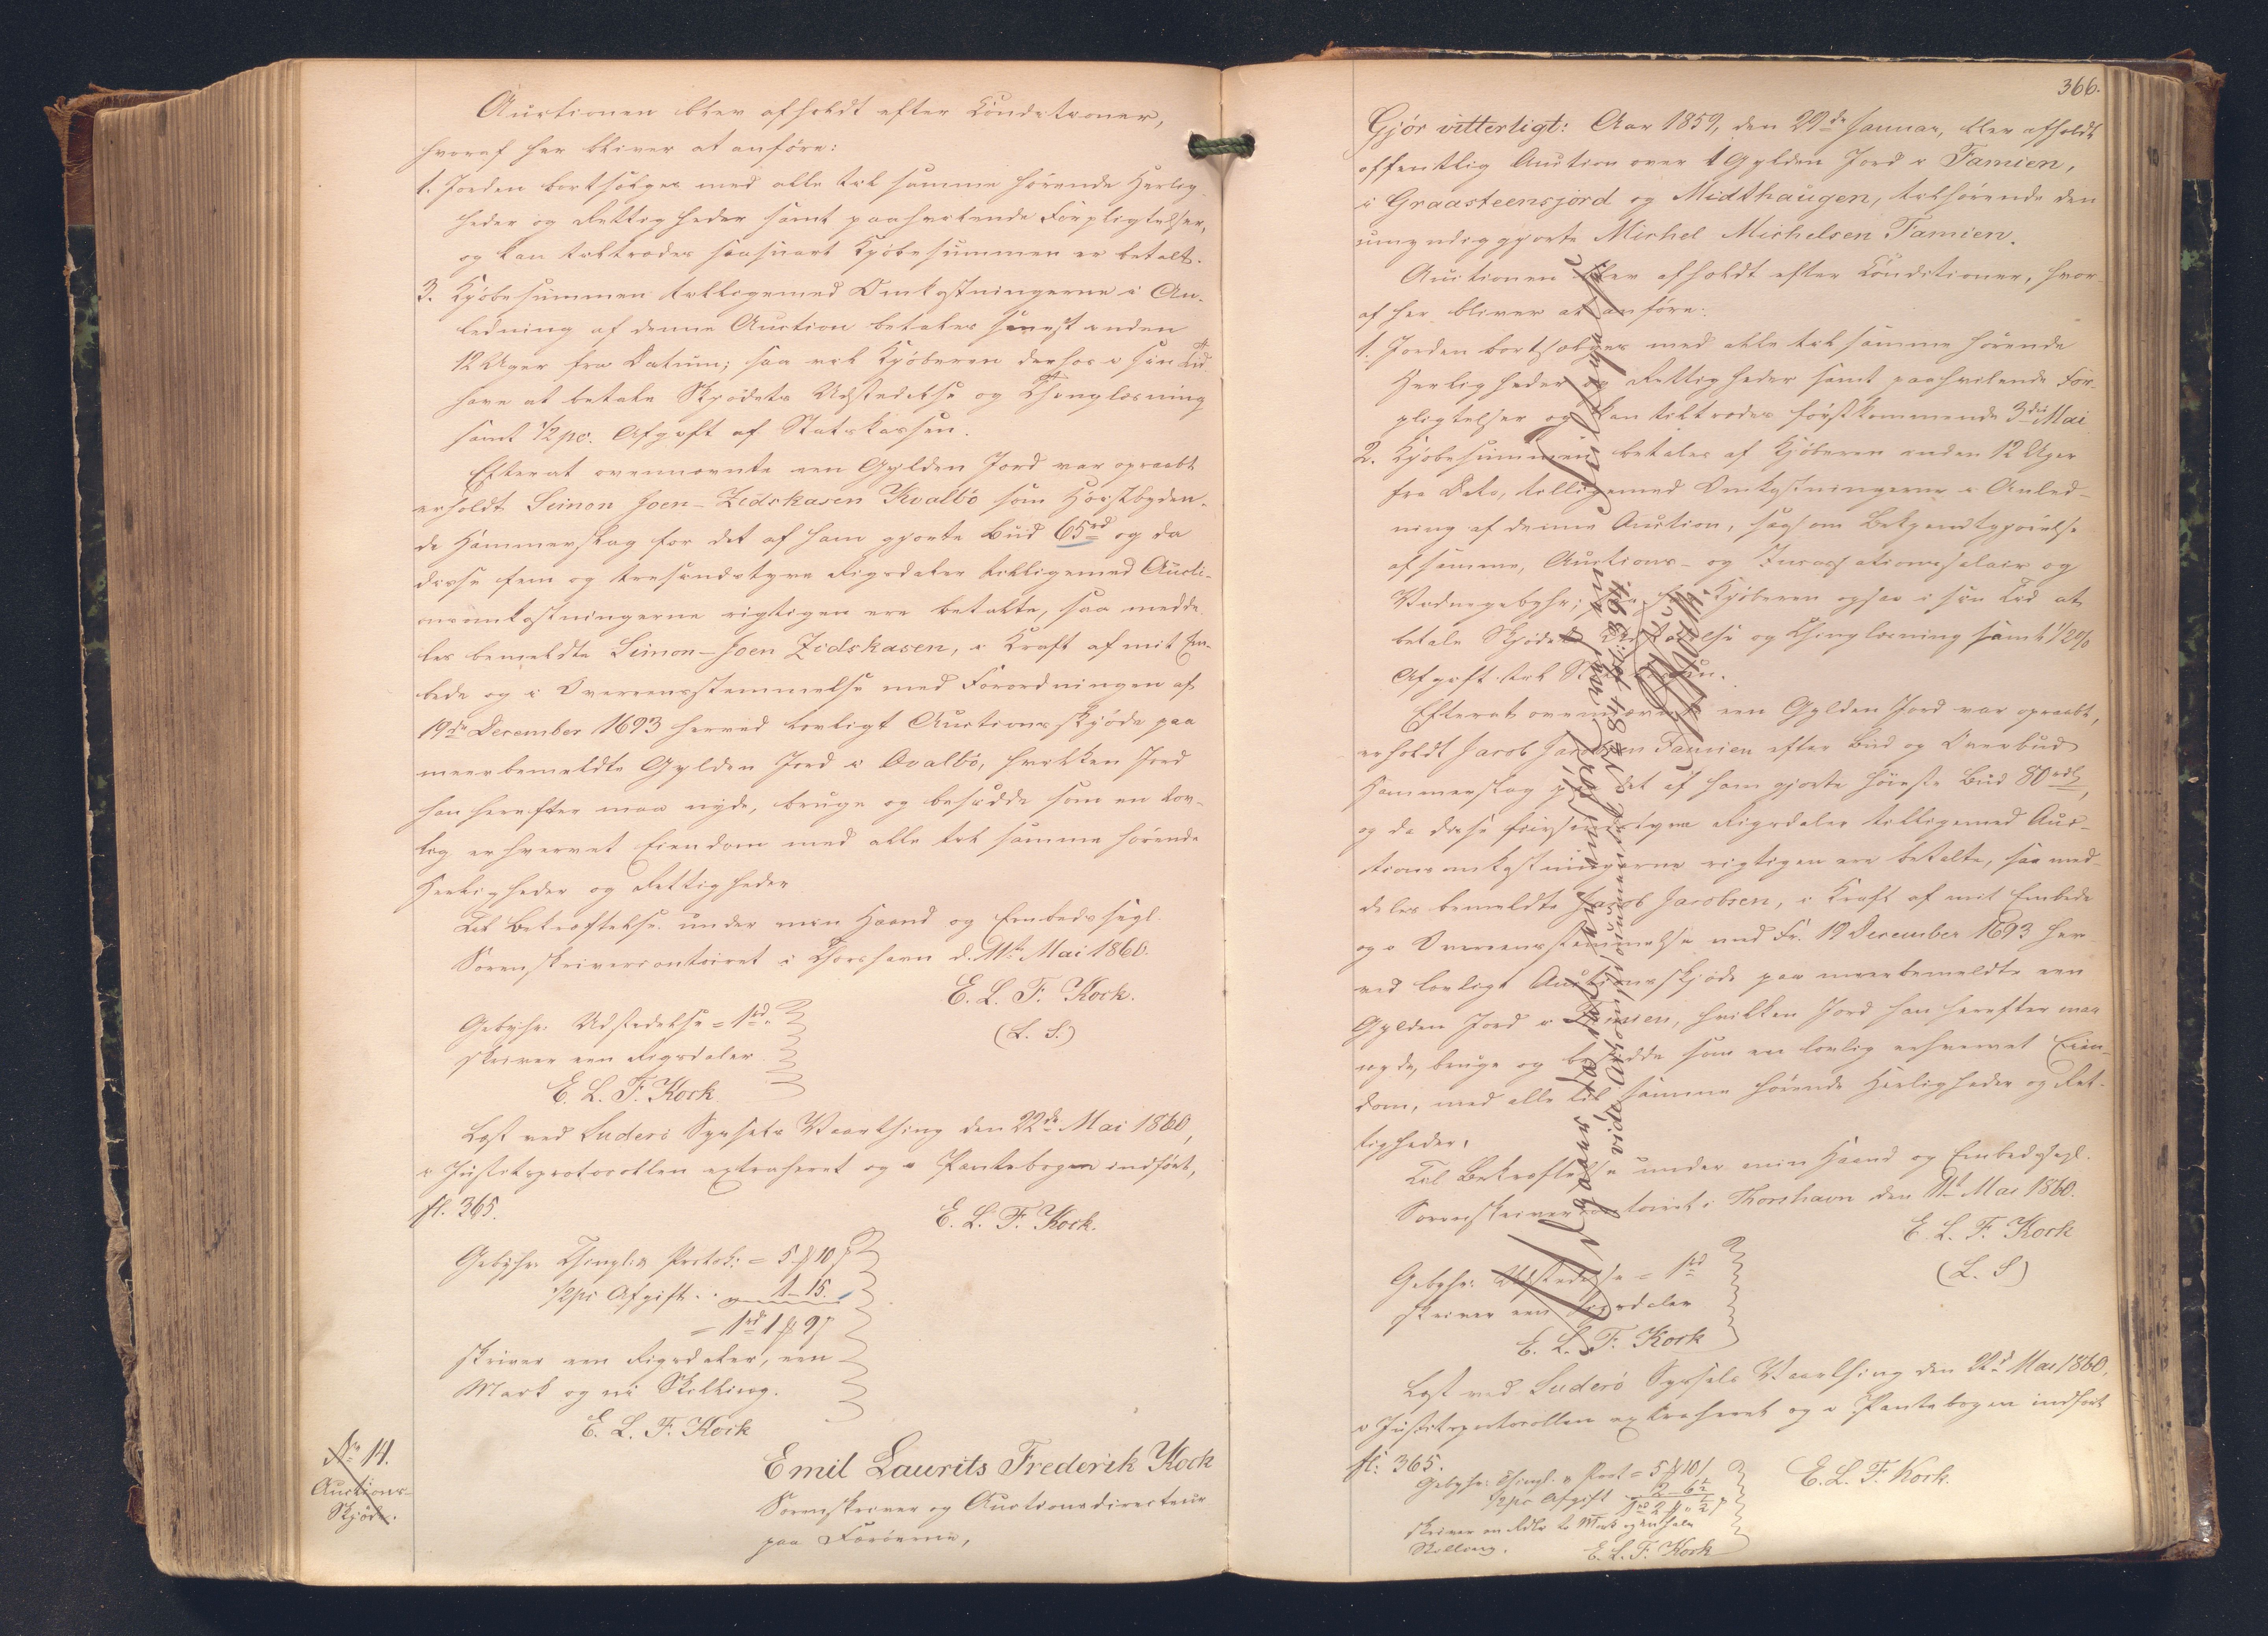 Auctionen blev afholdt efter Conditioner,
hvoraf her bliver at anföre:
1. Jorden bortsælges med alle til samme hörende Herlig-
heder og Rettigheder samt paahvilende Forpligtelser,
og kan tiltrædes saasnart Kjöbesummen er betalt.
3. Kjöbesummen tilligemed Omkostningerne i An-
ledning af denne Auction betales senest inden
12 Uger fra Datum; saa vil Kjöberen derhos i sin Tid
have at betale Skjödets Udstedelse og Thinglæsning
samt 1/2 pc. Afgift af Statskassen.
Efterat ovennævnte een Gylden Jord var opraabt
erholdt Simon Joen-Zidskasen Kvalbö som Höistbyden-
de Hammerslag for det af ham gjorte Bud 65 rd og da
disse fem og tresindstyve Rigsdaler tilligemed Aucti-
onsomkostningerne rigtigen ere betalte, saa medde-
les bemeldte Simon-Joen Zidskasen, i Kraft af mit Em-
bede og i Overeensstemmelse med Forordningen af
19de December 1693 herved lovligt Auctionsskjöde paa
meerbemeldte Gylden Jord i Qvalbö, hvilken Jord
han herefter maa nyde, bruge og besidde som en lov-
lig erhvervet Eiendom med alle til samme hörende
Herligheder og Rettigheder
Til Bekræftelse under min Haand og Embedssegl.
Sorenskrivercontoiret i Thorshavn d. 11te Mai 1860.
E. L. F. Kock.
(L. S.)
Gebyhr: Udstedelse = 1 rd.
skriver een Rigsdaler
E. L. F. Kock.
Læst ved Suderö Syssels Vaarthing den 22de Mai 1860,
i Justitsprotocollen extraheret og i Pantebogen indfört,
fl. 365.
E. L. F. Kock.
Gebyhr Thingl: & Protok: = 5 ꝟ 10 ß
1/2 pc Afgift . . 1 - 15.
= 1 rd 1 ꝟ 9 ß
skriver een Rigsdaler, een
Mark og ni Skilling.
E. L. F. Kock
No 14.
Auctions-
Skjöde.
Emil Laurits Frederik Kock
Sorenskriver og Auctionsdirecteur
paa Færöerne,
366.
Gjör vitterligt: Aar 1859, den 29de Januar, blev afholdt
offentlig Auction over 1 Gylden Jord i Famien,
i Graasteensjord og Midthaugen, tilhörende den
umyndiggjorte Michel Michelsen Famien.
Auctionen blev afholdt efter Conditioner, hvor-
af her bliver at anföre:
1. Jorden bortsælges med alle til samme hörende
Herligheder og Rettigheder samt paahvilende For-
pligtelser og kan tiltrædes förstkommende 3die Mai
2. Kjöbesummen betales af Kjöberen inden 12 Uger
fra Dato, tilligemed Omkostningerne i Anled-
ning af denne Auction, saasom Bekjendtgjörelse
af samme, Auctions- og Incassationssalair og
Kjöberen ogsaa i sin Tid at
betale Skjödets Udstedelse og Thinglæsning samt 1/2 %
Afgift til Statskassen.
Efterat ovennævnte een Gylden Jord var opraabt,
erholdt Jacob Jacobsen Famien efter Bud og Overbud
Hammerslag paa det af ham gjorte höieste Bud 80 rdl,
og da disse firsindstyve Rigsdaler tilligemed Auc-
tionsomkostningerne rigtigen ere betalte, saa med-
deles bemeldte Jacob Jacobsen, i Kraft af mit Embede
og i Overeensstemmelse med Fr. 19 December 1693 her-
ved lovligt Auctionsskjöde paa meerbemeldte een
Gylden Jord i Famien, hvilken Jord han herefter maa
nyde, bruge og besidde som en lovlig erhvervet Eien-
dom, med alle til samme hörende Herligheder og Ret-
tigheder.
Til Bekræftelse under min Haand og Embedssegl.
Sorenskrivercontoiret i Thorshavn den 11te Mai 1860.
E. L. F. Kock
(L. S)
Gebyhr: Udstedelse = 1 rd
skriver een Rigsdaler
E. L. F. Kock
Læst ved Suderö Syssels Vaarthing den 22de Mai 1860,
i Justitsprotocollen extraheret og i Pantebogen indfört
fl: 365.
E. L. F. Kock.
Gebyhr: Thingl. & Prot = 5 ꝟ 10 ß
1/2 pc Afgift 2 - 6 1/2
1 rd 2 ꝟ " 1/2 ß
skriver en Rdlr to Mark og en halv
Skilling.
E. L. F. Kock
Udgaaer da
vide Auctionsdocument No 48 fol: 364.